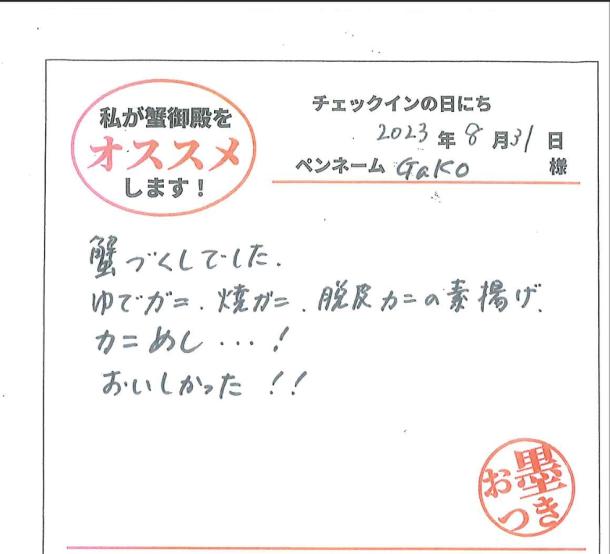 私が蟹御殿を
オススメ
します！
チェックインの日にち
2023年8月31日
ペンネーム GaKo 様
蟹づくしでした.
ゆでガニ.焼ガニ.脱皮カニの素揚げ.
カニめし…!
おいしかった!!
お墨
つき